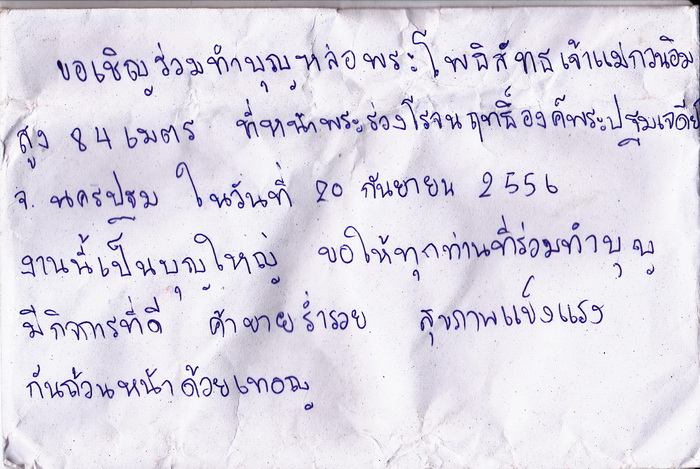 ขอเชิญร่วมทำบุญหล่อพระโพธิสัทธเจ้าแม่กวนอิม
สูง 84 เมตร ที่หน้าพระร่วงโรจนฤทธิ์องค์พระปฐมเจดีย
จ. นครปฐม ในวันที่ 20 กันยายน 2556
งานนี้เป็นบุญใหญ่ ขอให้ทุกท่านที่ร่วมทำบุญ
มีกิจการที่ดี ค้าขายร่ำรวย สุขภาพแข็งแรง
กันถ้วนหน้าด้วยเทอญ